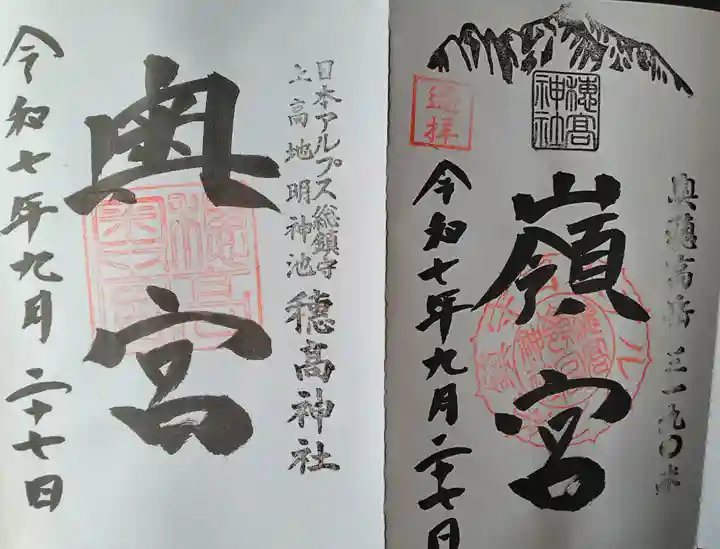 奥穂高岳 三一九〇米
穂高神社
嶺宮
遥拝
令和七年九月二十七日
日本アルプス総鎮守
上高地明神池
穂高神社
奥宮
令和七年九月二十七日